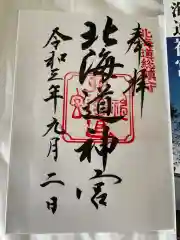 奉拝
北海道総鎮守
北海道神宮
令和三年九月二日